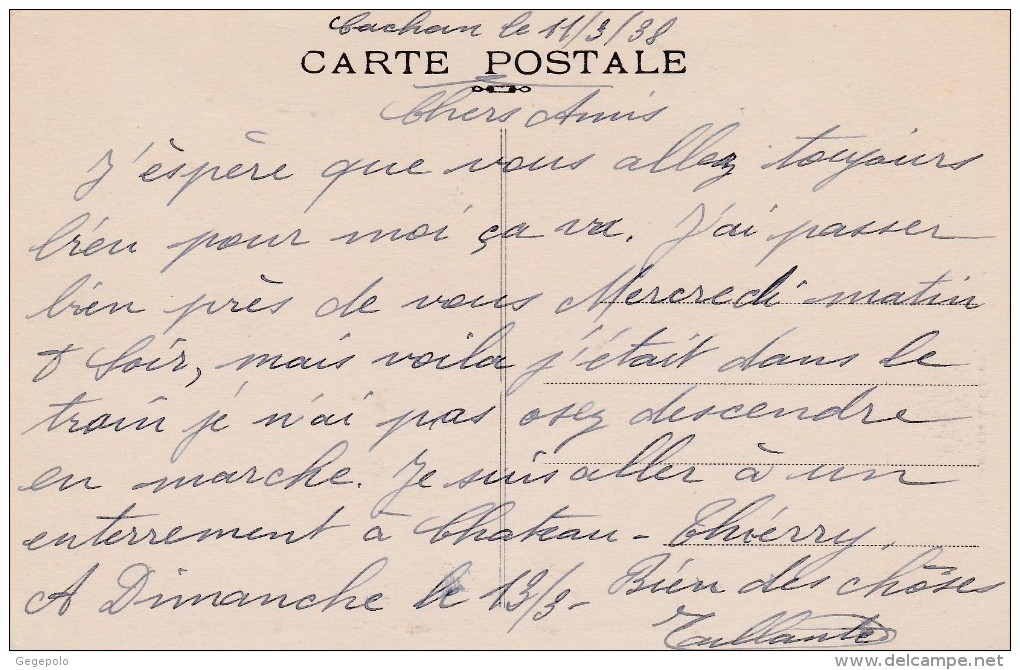 Cachan le 11/3/38
CARTE POSTALE
Chers Amis
J'éspère que vous allez toujours
bien pour moi ça va. J'ai passer
bien près de vous Mercredi matin
& soir, mais voila j'était dans le
train je n'ai pas osez descendre
en marche. Je suis aller à un
enterrement à Chateau-Thiérry.
A Dimanche le 13/3- Bien des chôses
Gegepolo
delcampe.net